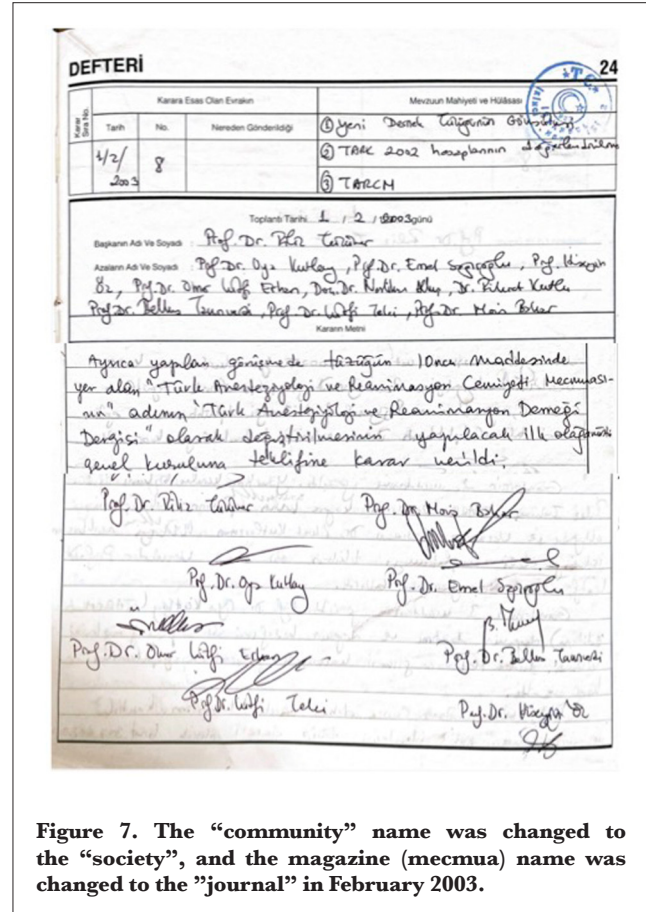 DEFTERİ 24
Karar Sıra No. Karara Esas Olan Evrakın Mevzuun Mahiyeti ve Hülâsası
Tarih No. Nereden Gönderildiği ① Yeni Dernek tüzüğünün
1/2/2003 8 ② TARK 2002 hesaplarının
③ TARCM
T.C.
Toplantı Tarihi 1 / 2 / 2003 günü
Başkanın Adı Ve Soyadı : Prof. Dr. Filiz Tüzüner
Azaların Adı Ve Soyadı : Prof. Dr. Oya Kutlay, Prof. Dr. Emel Sağıroğlu, Prof. Hüseyin
Öz, Prof. Dr. Ömer Lütfi Erhan, Doç. Dr. Dr.
Prof. Dr. Belkıs Tanrıverdi, Prof. Dr. Lütfi Telci, Prof. Dr. Mois Bahar
Kararın Metni
Ayrıca yapılan görüşmede tüzüğün 10ncu maddesinde
yer alan "Türk Anesteziyoloji ve Reanimasyon Cemiyeti Mecmuası-
nın" adının "Türk Anesteziyoloji ve Reanimasyon Derneği
Dergisi" olarak değiştirilmesinin yapılacak ilk olağanüstü
genel kuruluna teklifine karar verildi.
Prof. Dr. Filiz Tüzüner Prof. Dr. Mois Bahar
Prof. Dr. Oya Kutlay Prof. Dr. Emel Sağıroğlu
Prof. Dr. Ömer Lütfi Erhan Prof. Dr. Belkıs Tanrıverdi
Prof. Dr. Lütfi Telci Prof. Dr. Hüseyin Öz
Figure 7. The “community” name was changed to
the “society”, and the magazine (mecmua) name was
changed to the ”journal” in February 2003.